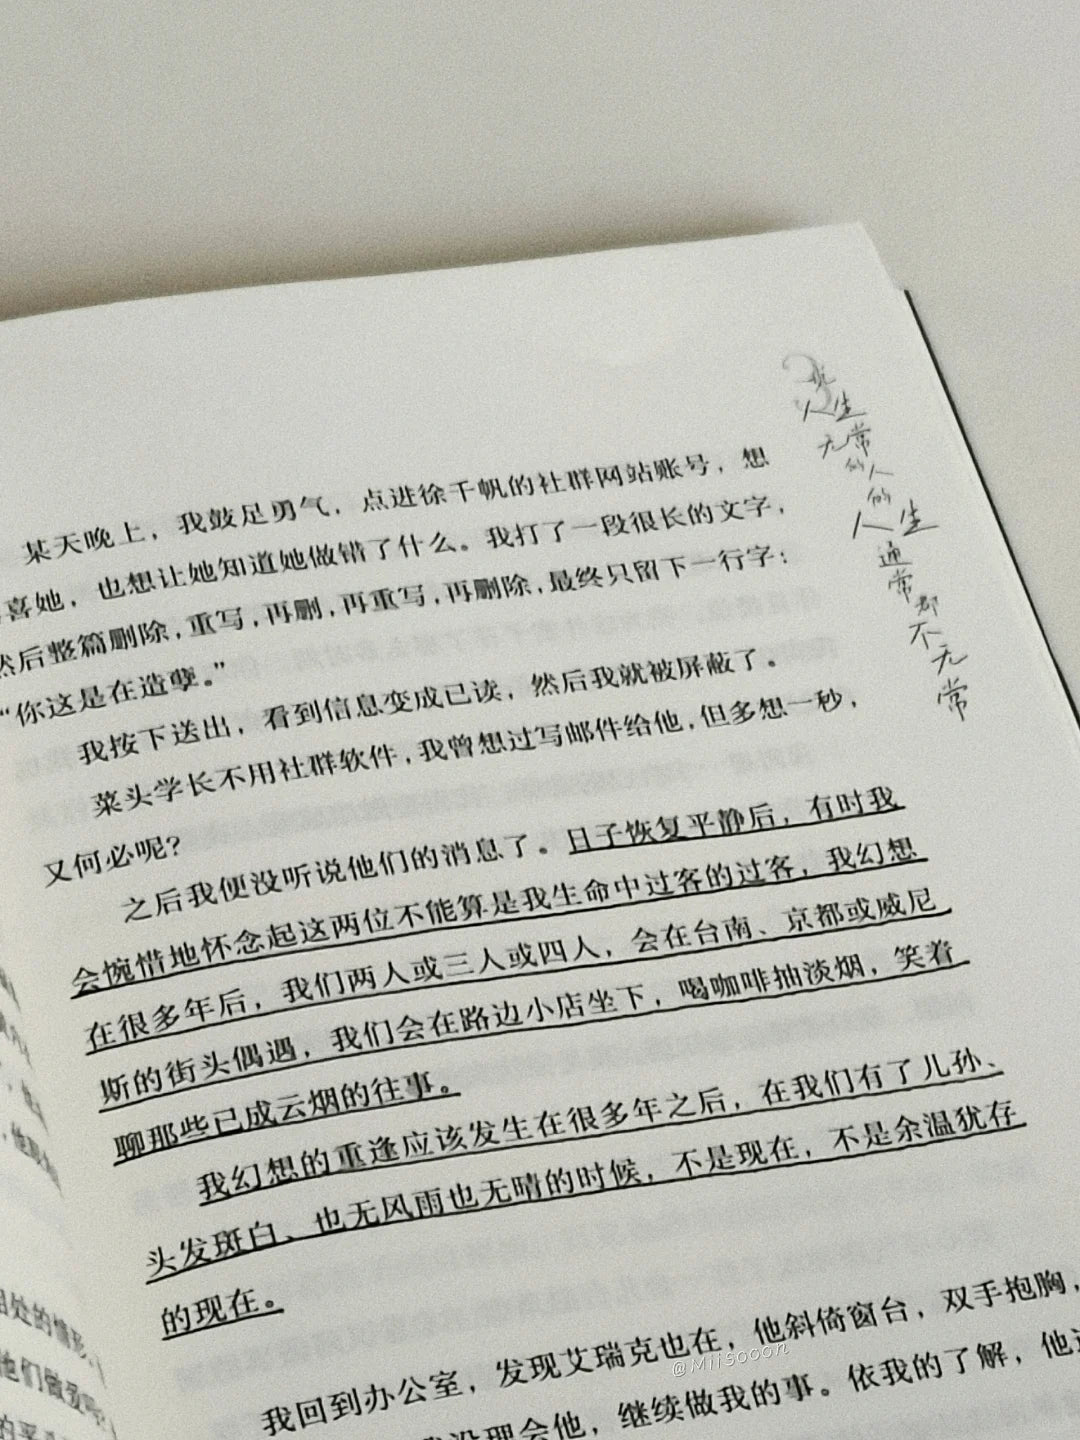 某天晚上，我鼓足勇气，点进徐千帆的社群网站账号，想
喜她，也想让她知道她做错了什么。我打了一段很长的文字，
然后整篇删除，重写，再删，再重写，再删除，最终只留下一行字：
“你这是在造孽。”
我按下送出，看到信息变成已读，然后我就被屏蔽了。
菜头学长不用社群软件，我曾想过写邮件给他，但多想一秒，
又何必呢？
之后我便没听说他们的消息了。日子恢复平静后，有时我
会惋惜地怀念起这两位不能算是我生命中过客的过客，我幻想
在很多年后，我们两人或三人或四人，会在台南、京都或威尼
斯的街头偶遇，我们会在路边小店坐下，喝咖啡抽淡烟，笑着
聊那些已成云烟的往事。
我幻想的重逢应该发生在很多年之后，在我们有了儿孙、
头发斑白、也无风雨也无晴的时候，不是现在，不是余温犹存
的现在。
我回到办公室，发现艾瑞克也在，他斜倚窗台，双手抱胸，
没理会他，继续做我的事。依我的了解，他
人生
无常
的人
的
人生
通
常都
不
无
常
相处的情形
他们做爱吧
@Miisooon